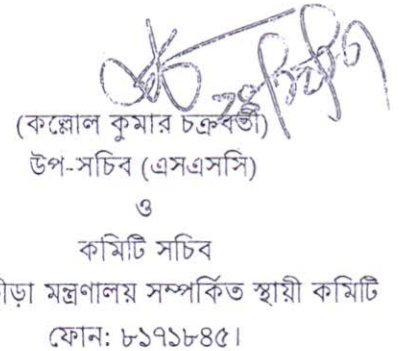 (কল্লোল কুমার চক্রবর্তী)
উপ-সচিব (এসএসসি)
ও
কমিটি সচিব
মন্ত্রণালয় সম্পর্কিত স্থায়ী কমিটি
ফোন: ৮১৭১৮৪৫।